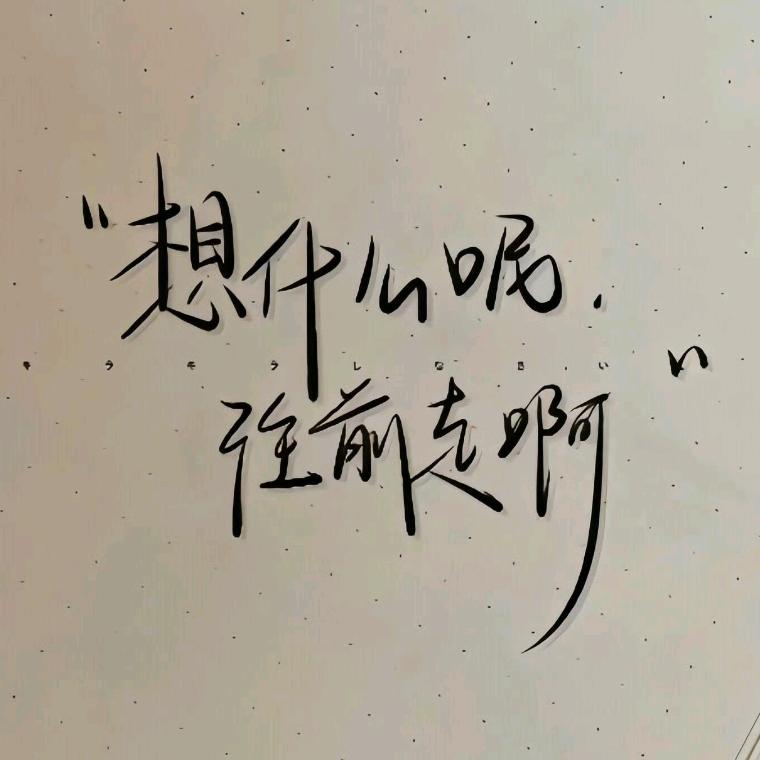 “想什么呢.
往前走啊”